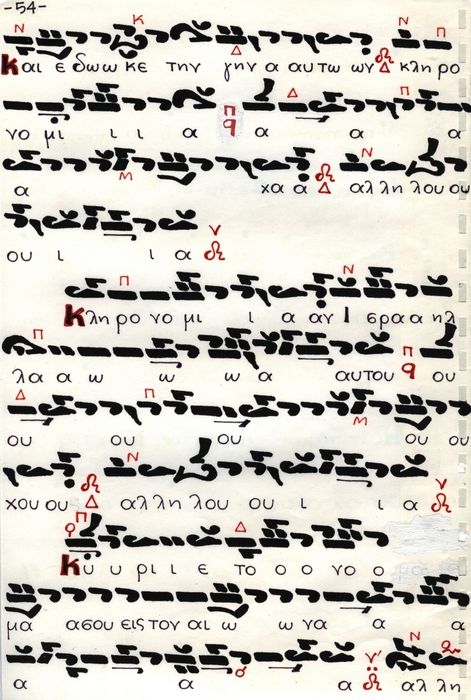 -54-
Και ε δωω κε την γην α αυτω ων κλη ρο
νο μι ι ι α α α α
α χα α αλ λη λου ου
ου ι ι α
Κλη ρο νο μι ι α αν Ι σρα α ηλ
λα α ω ω ω α αυτου ου
ου ου ου ου ου
χου ου αλ λη λου ου ι ι α
Κυ υ ρι ι ε το ο ο νο ο
μα α σου εις τον αι ω ω να α α
α α α αλ λη